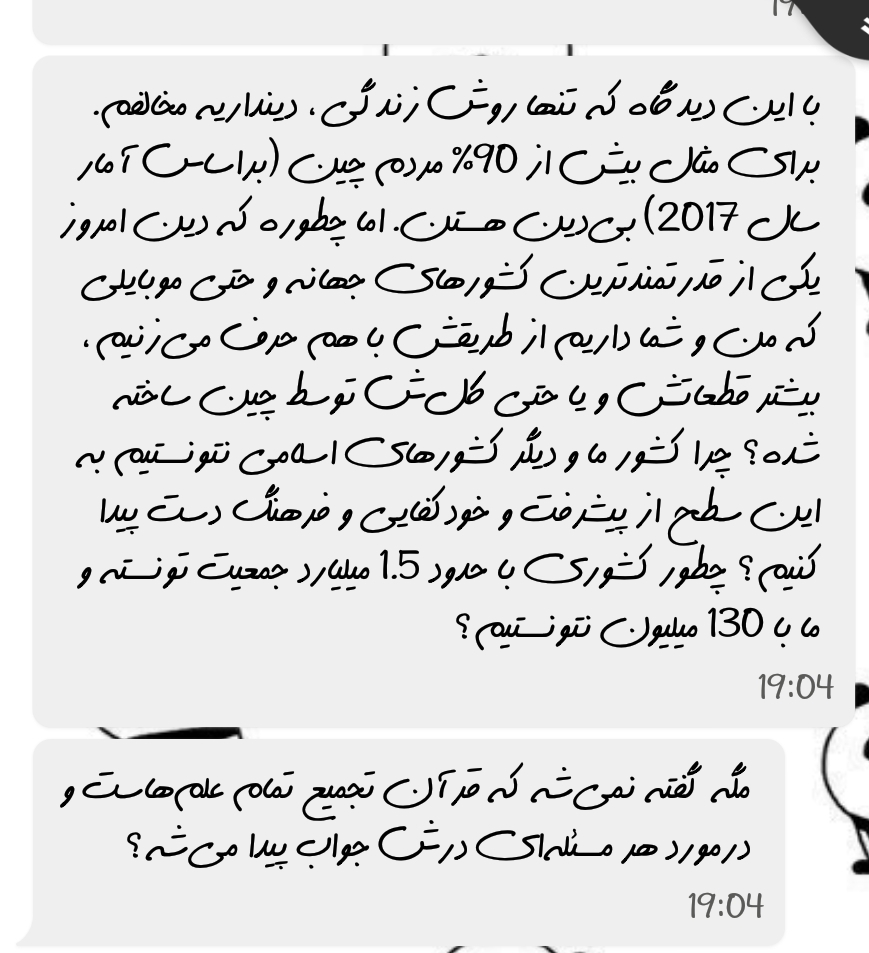 با این دیدگاه که تنها روش زندگی، دینداریه مخالفم.
برای مثال بیش از 90% مردم چین (براساس آمار
سال 2017) بی‌دین هستن. اما چطوره که دین امروز
یکی از قدرتمندترین کشورهای جهانه و حتی موبایلی
که من و شما داریم از طریقش با هم حرف می‌زنیم،
بیشتر قطعاتش و یا حتی کل‌ش توسط چین ساخته
شده؟ چرا کشور ما و دیگر کشورهای اسلامی نتونستیم به
این سطح از پیشرفت و خودکفایی و فرهنگ دست پیدا
کنیم؟ چطور کشوری با حدود 1.5 میلیارد جمعیت تونسته و
ما با 130 میلیون نتونستیم؟
19:04
مگه گفته نمی‌شه که قرآن تجمیع تمام علم‌هاست و
درمورد هر مسئله‌ای درش جواب پیدا می‌شه؟
19:04